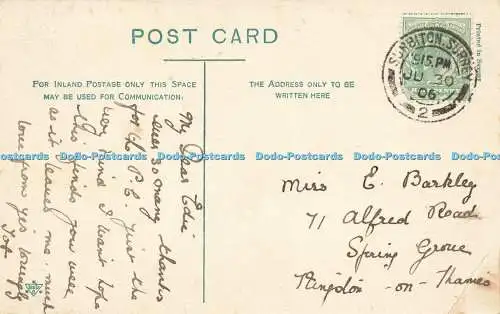 POST CARD
FOR INLAND POSTAGE ONLY THIS SPACE
MAY BE USED FOR COMMUNICATION.
THE ADDRESS ONLY TO BE
WRITTEN HERE
Printed in
SURBITON. SURREY
915 PM
JU 30
06
2
My Dear Edie
ever so many thanks
for the P.C. just the
very kind I want hope
this finds you well
as it leaves me. much
love from yrs lovingly
Miss E. Barkley
71 Alfred Road
Spring Grove
Kingston-on-Thames
Dobs Postcards Dobs Postcards Dobs Postcards Dobs Postcards Dobs Postcards